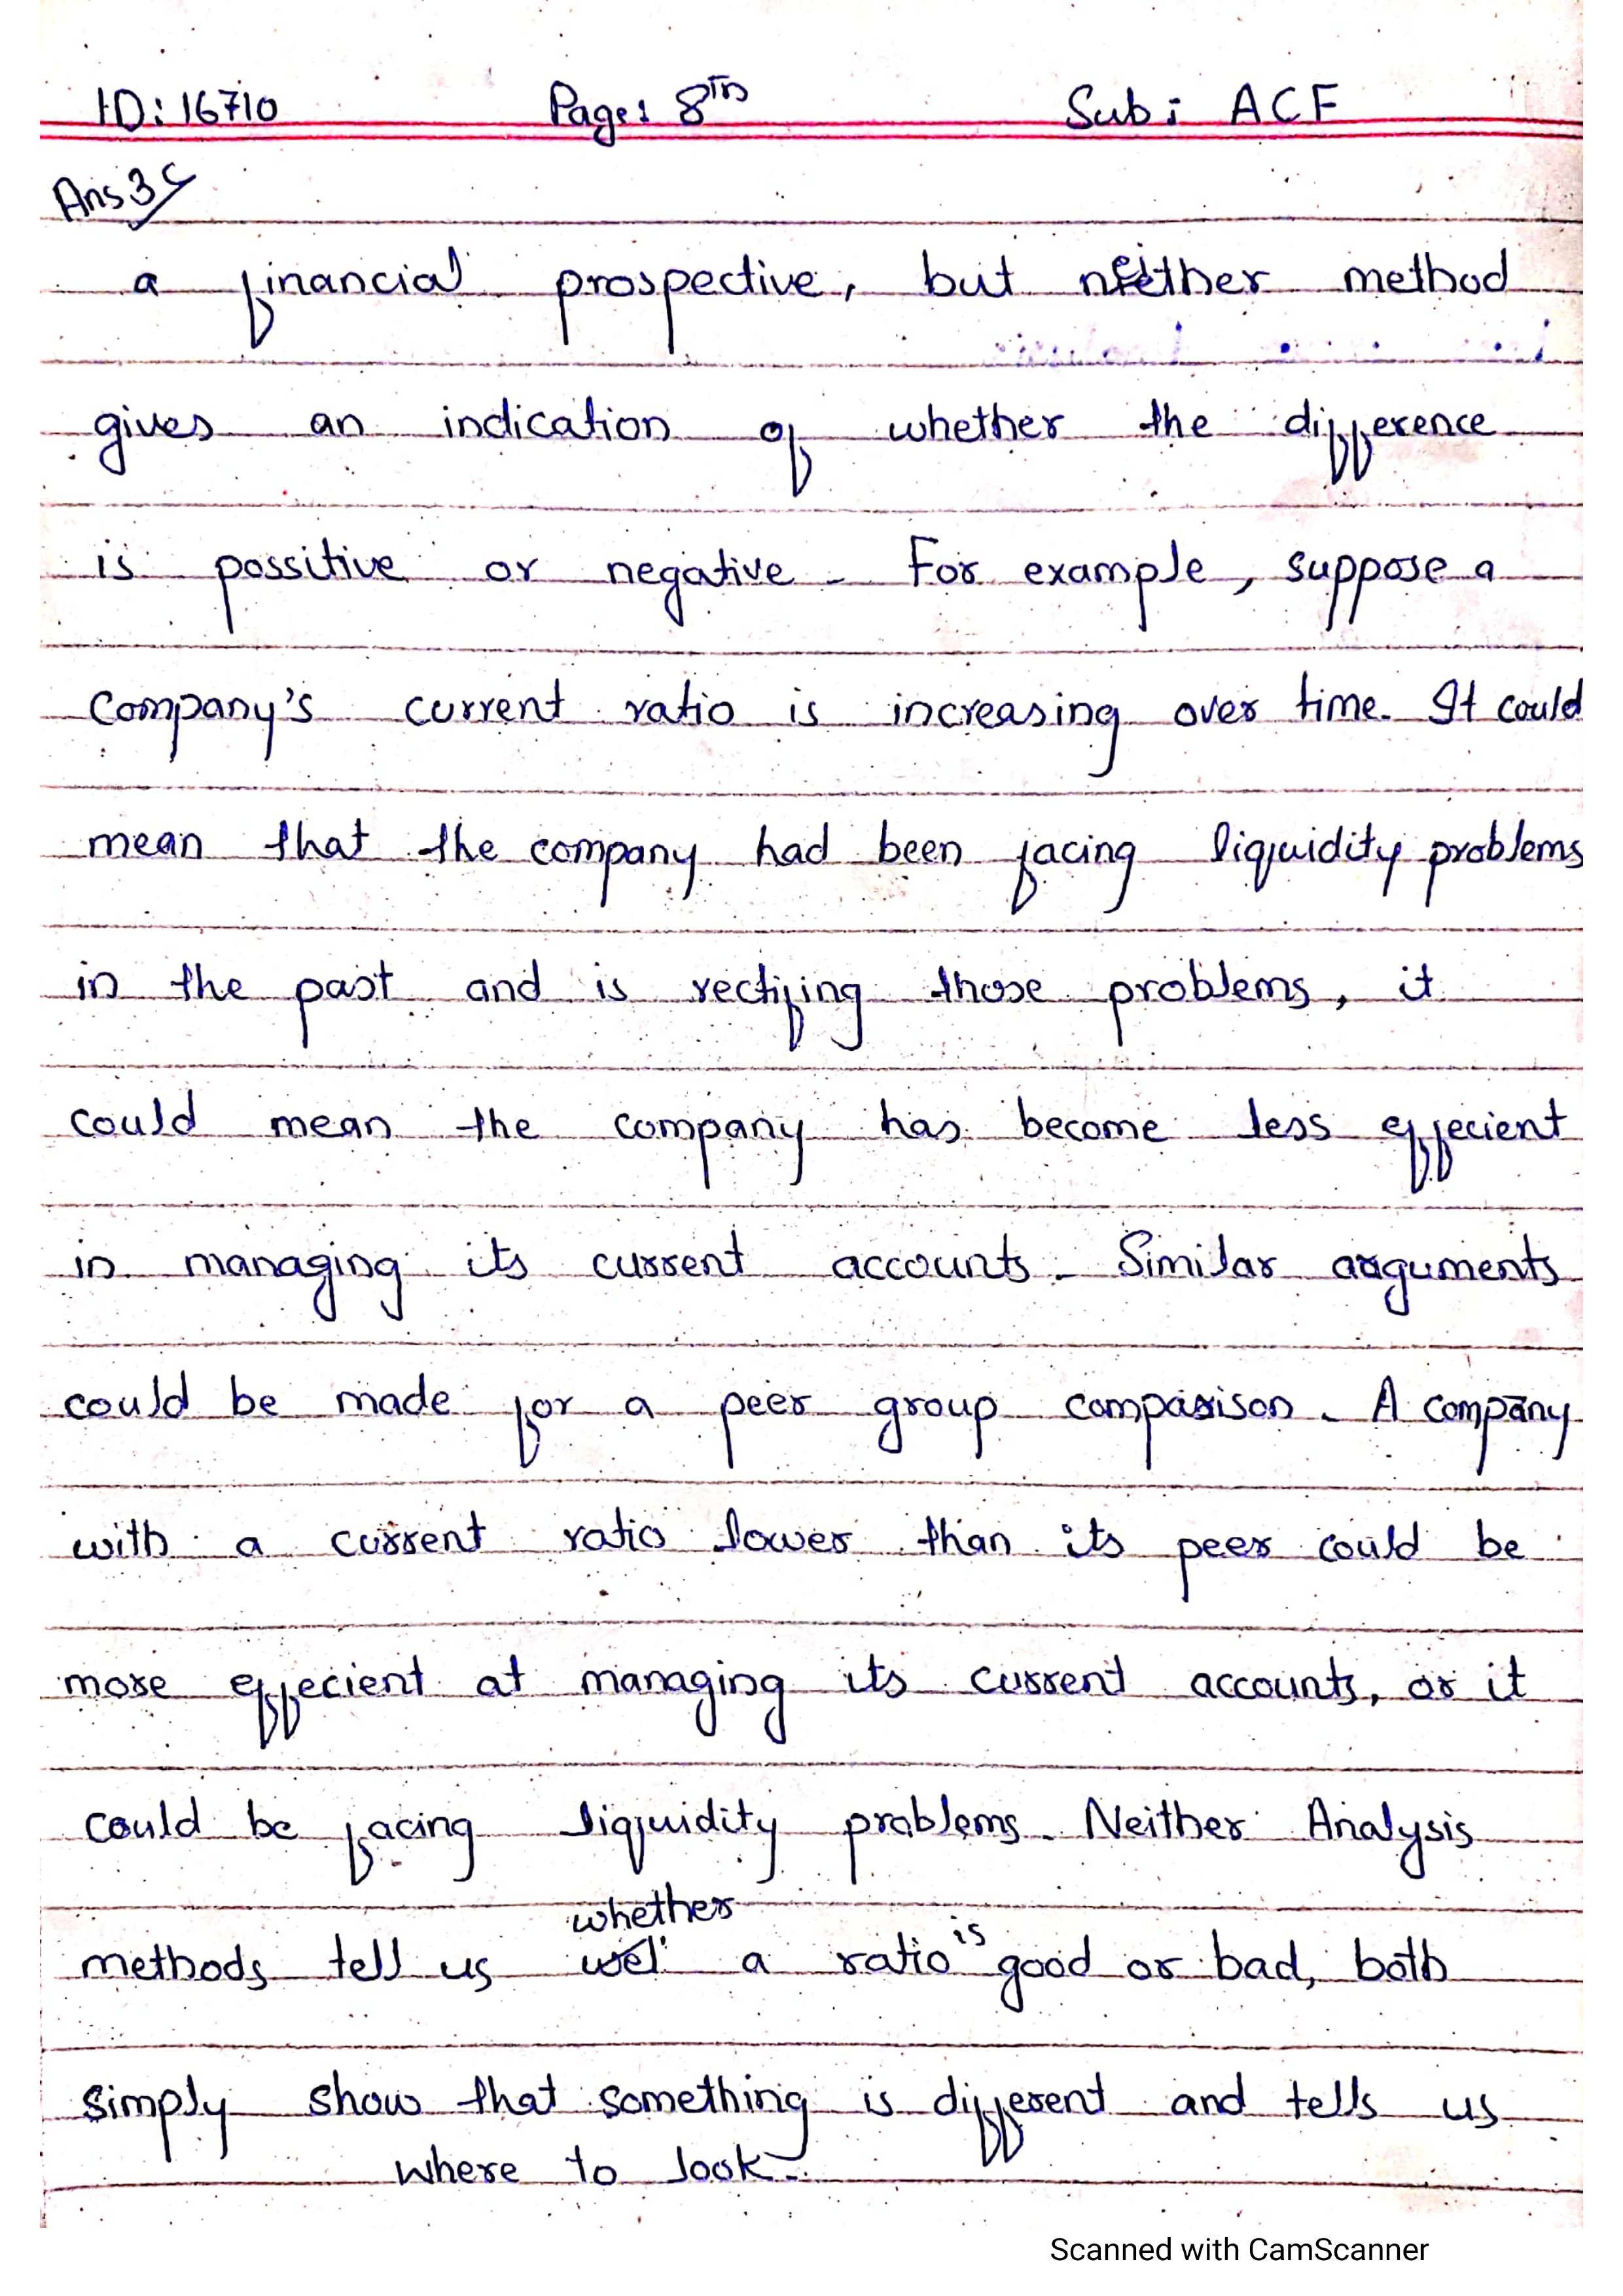 ID: 16710 Page: 8th Sub: ACF
Ans 3c
a financial prospective, but neither method
gives an indication of whether the difference
is possitive or negative. For example, suppose a
company's current ratio is increasing over time. It could
mean that the company had been facing liquidity problems
in the past and is rectifing those problems, it
could mean the company has become less effecient
in managing its current accounts. Similar arguments
could be made for a peer group comparison. A company
with a current ratio lower than its peer could be
more effecient at managing its current accounts, or it
could be facing liquidity problems. Neither Analysis
whether
methods tell us a ratio is good or bad, both
simply show that something is different and tells us
where to look.
Scanned with CamScanner